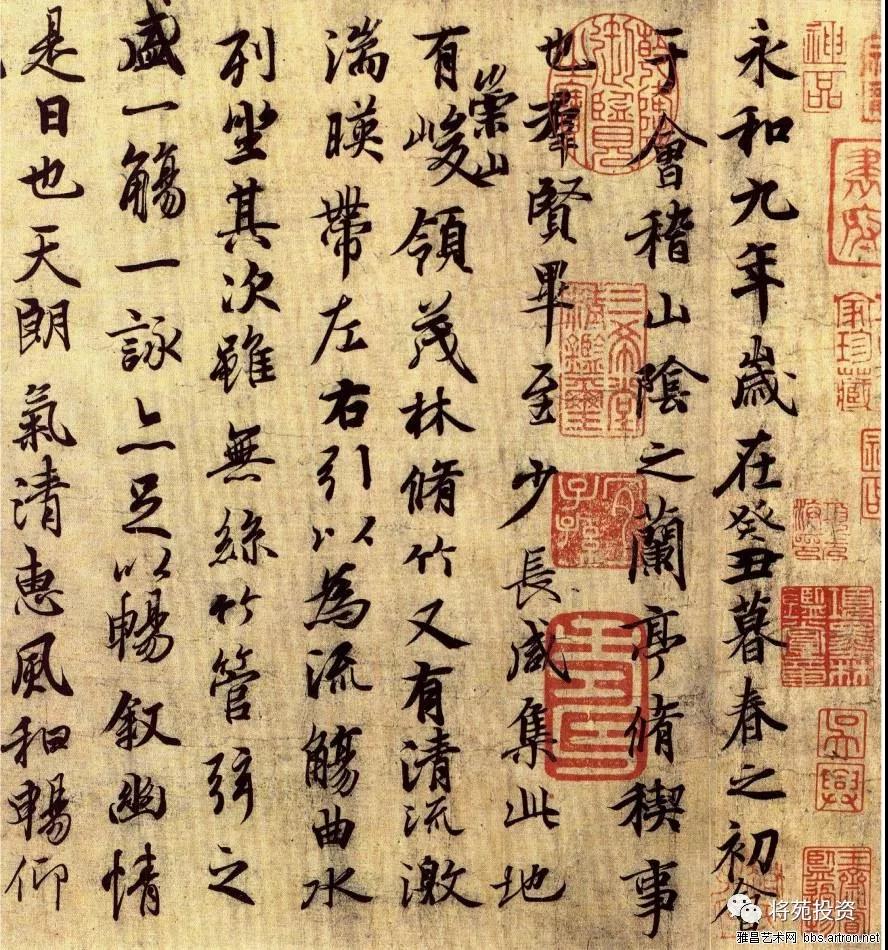 神品
書府
家珍藏
項墨林鑑賞章
吳興
永和九年歲在癸丑暮春之初會
于會稽山陰之蘭亭脩稧事
也羣賢畢至少長咸集此地
有崇山峻領茂林脩竹又有清流激
湍暎帶左右引以為流觴曲水
列坐其次雖無絲竹管弦之
盛一觴一詠亦足以暢敘幽情
是日也天朗氣清惠風和暢仰
三希堂精鑑璽
宜子孫
将苑投资
雅昌艺术网 bbs.artron.net